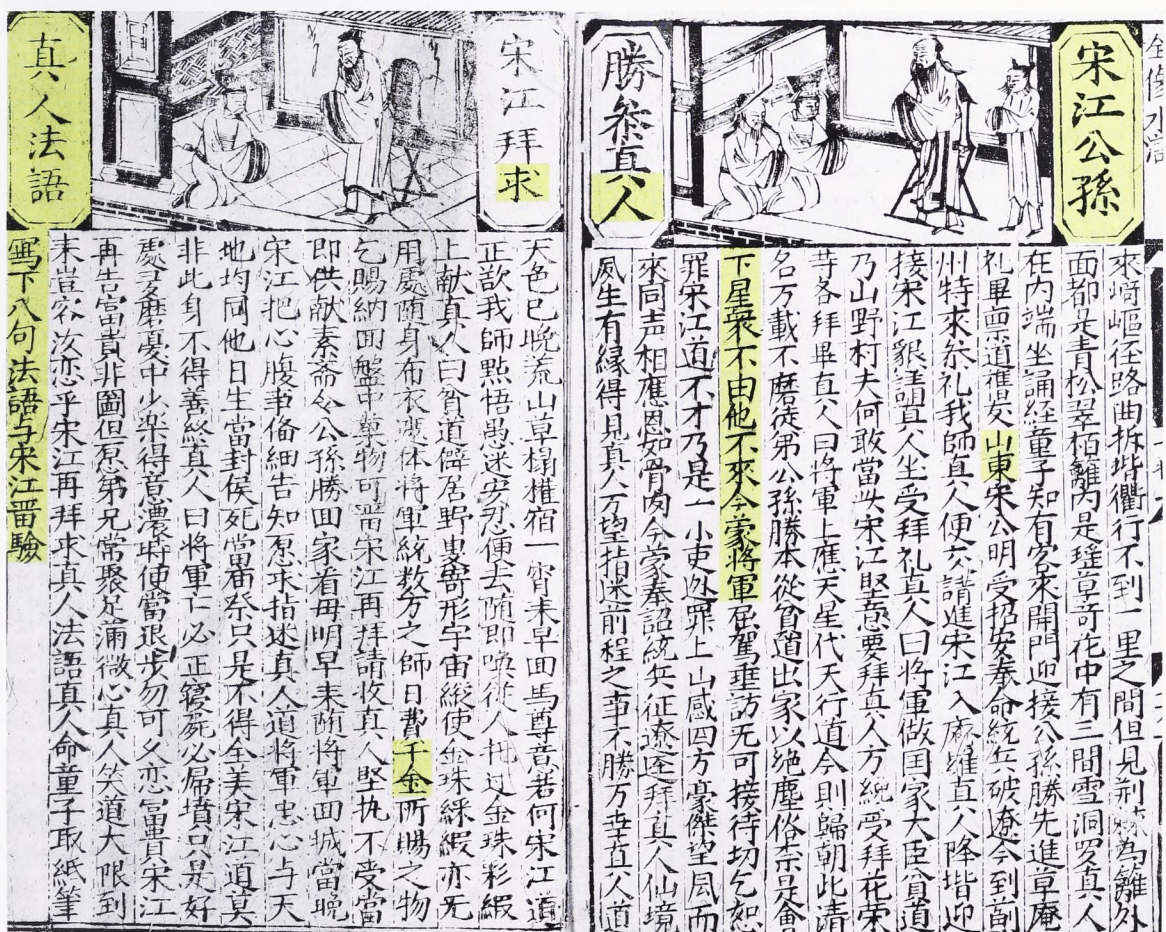 全像水滸
宋江公孫
勝叅真人
來崎嶇徑路曲拆堦衢行不到一里之間但見荆棘為籬外
面都是青松翠栢籬內是瑤草竒花中有三間雪洞罗真人
在內端坐誦經童子知有客來開門迎接公孫勝先進草庵
礼畢禀道進山東宋公明受招安奉命統兵破遼今到薊
州特求叅礼我師真人便交請進宋江入庵真人降堦迎
接宋江懇請真人坐受拜礼真人曰將軍做囯家大臣貧道
乃山野村夫何敢當此宋江堅意要拜真人方纔受拜花荣
等各拜畢真人曰將軍上應天星代天行道今則歸朝此清
名万載不磨徒弟公孫勝本從貧道出家以绝塵俗柰是會
下星衆不由他不來今蒙將軍屈駕垂訪无可接待切乞恕
罪宋江道不才乃是一小吏迯罪上山感四方豪傑望風而
來同声相應恩如骨肉今蒙奉詔統兵征遼逕拜真人仙境
夙生有縁得見真人万望指迷前程之事不勝万幸真人道
宋江拜求
真人法語
天色已晚荒山草榻權宿一宵来早囬馬尊意若何宋江道
正欲我師點悟愚迷安忍便去随即喚從人托过金珠彩緞
上献真人曰貧道僻居野叟寄形宇宙縱使金珠綵緞亦无
用處随身布衣遮体將軍統数万之師日費千金所賜之物
乞賜納囬盤中菓物可畱宋江再拜請收真人堅执不受當
即供献素斋令公孫勝囬家看母明早来随將軍囬城當晚
宋江把心腹事俻細告知愿求指迷真人道將軍忠心与天
地均同他日生當封侯死當庙祭只是不得全美宋江道莫
非此身不得善終真人曰將軍亡必正寝死必歸墳只是好
處多磨憂中少楽得意濃時使當退步勿可久恋富貴宋江
再告富貴非圖但愿弟兄常聚足滿微心真人笑道大限到
来豈容汝恋乎宋江再拜求真人法語真人命童子取紙筆
寫下八句法語与宋江畱驗